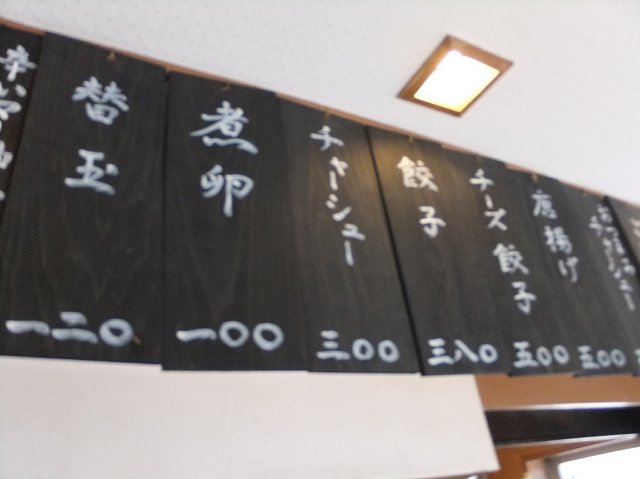 替玉
一二〇
煮卵
一〇〇
チャーシュー
三〇〇
餃子
三八〇
チーズ餃子
五〇〇
唐揚げ
五〇〇
チャーシュー